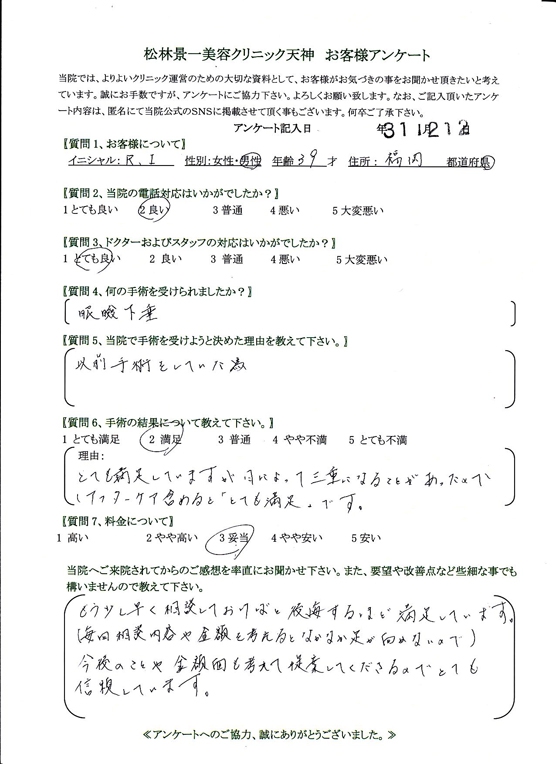 松林景一美容クリニック天神 お客様アンケート
当院では、よりよいクリニック運営のための大切な資料として、お客様がお気づきの事をお聞かせ頂きたいと考え
ています。誠にお手数ですが、アンケートにご協力下さい。よろしくお願い致します。なお、ご記入頂いたアンケ
ート内容は、匿名にて当院公式のSNSに掲載させて頂く事もございます。何卒ご了承下さい。
アンケート記入日 年31 1月21 2日
〖質問1、お客様について〗
イニシャル:R.I 性別:女性・男性 年齢39才 住所:福岡 都道府県
〖質問2、当院の電話対応はいかがでしたか?〗
1とても良い 2良い 3普通 4悪い 5大変悪い
〖質問3、ドクターおよびスタッフの対応はいかがでしたか?〗
1とても良い 2 良い 3 普通 4悪い 5大変悪い
〖質問4、何の手術を受けられましたか?〗
眼瞼下垂
〖質問5、当院で手術を受けようと決めた理由を教えて下さい。〗
以前手術をしていた為
〖質問6、手術の結果について教えて下さい。〗
1とても満足 2 満足 3 普通 4 やや不満 5 とても不満
理由:
とても満足していますが日によって三重になることがあったので
(アフターケア含めると「とても満足」です。
〖質問7、料金について〗
1 高い 2やや高い 3妥当 4やや安い 5安い
当院へご来院されてからのご感想を率直にお聞かせ下さい。また、要望や改善点など些細な事でも
構いませんので教えて下さい。
もう少し早く相談しておけばと後悔するほど満足しています。
(毎回相談内容や金額を考えるとなかなか足が向めないので)
今後のことや金額面も考えて提案してくださるのでとても
信頼しています。
≪アンケートへのご協力、誠にありがとうございました。≫